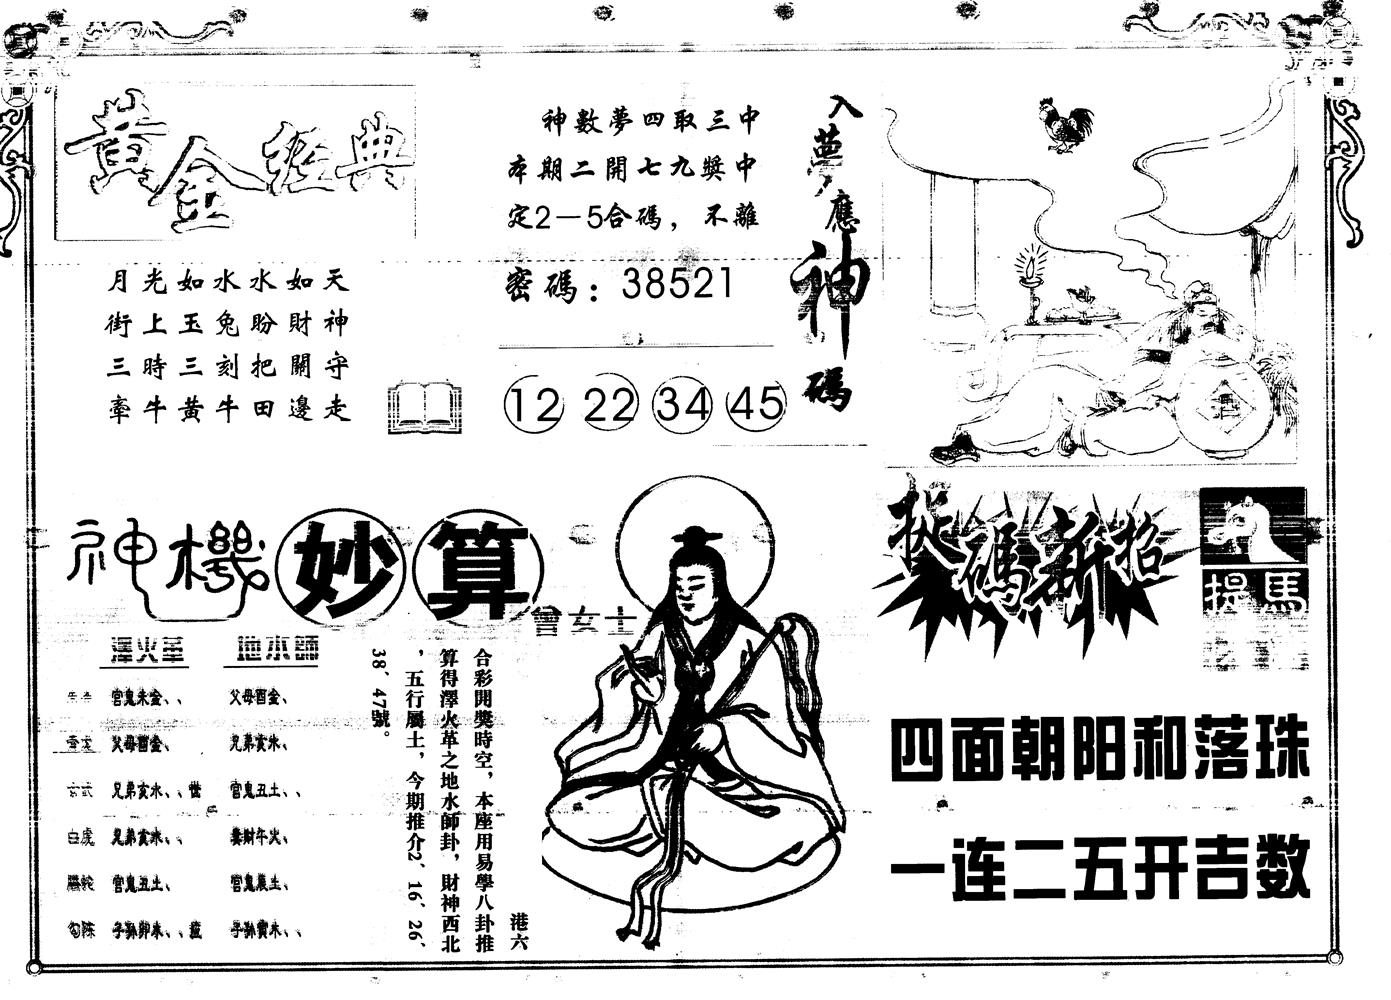 黃金經典
月光如水水如天
街上玉兔盼財神
三時三刻把關守
牽牛黃牛田邊走
神數夢四取三中
本期二開七九獎中
定2－5合碼，不離
密碼：38521
12 22 34 45
入夢應神碼
神機妙算
曾女士
澤火革 地水師
官鬼未金、、 父母酉金、
父母酉金、 兄弟亥水、
玄武 兄弟亥水、、世 官鬼丑土、、
白虎 兄弟亥水、、 妻財午火、
騰蛇 官鬼丑土、 官鬼辰土、
勾陈 子孫卯木、、 子孫寅木、、
港六
合彩開獎時空，本座用易學八卦推
算得澤火革之地水師卦，財神西北
，五行屬土，今期推介2、16、26、
38、47號。
碼新招
提馬
四面朝阳和落珠
一连二五开吉数